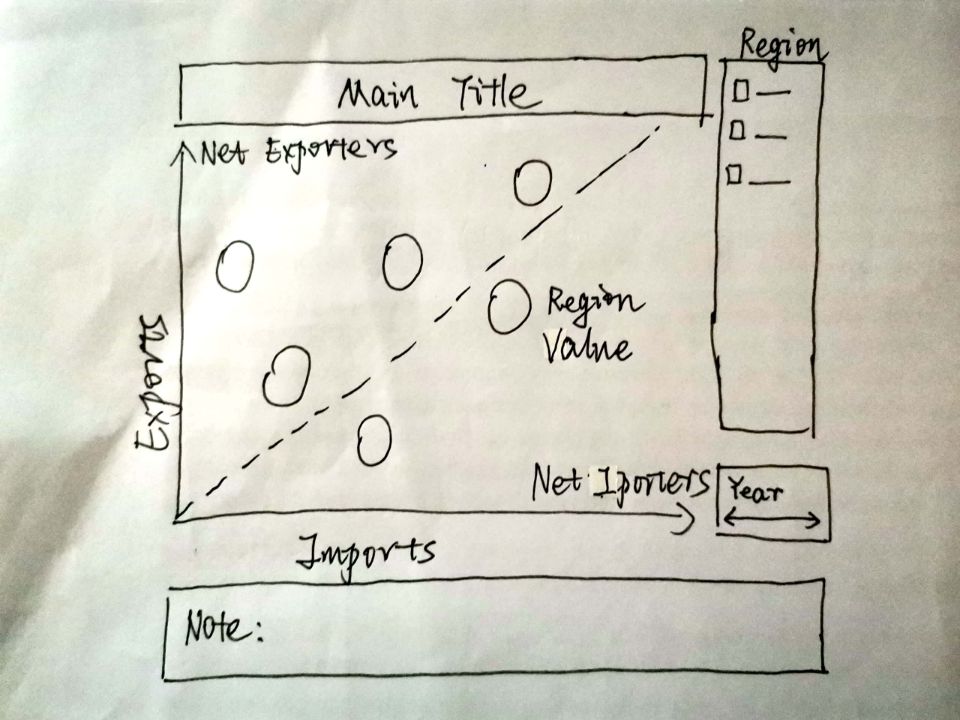 Region
Main Title
Net Exporters
Region
Value
Exports
Net Iporters
Year
Imports
Note: